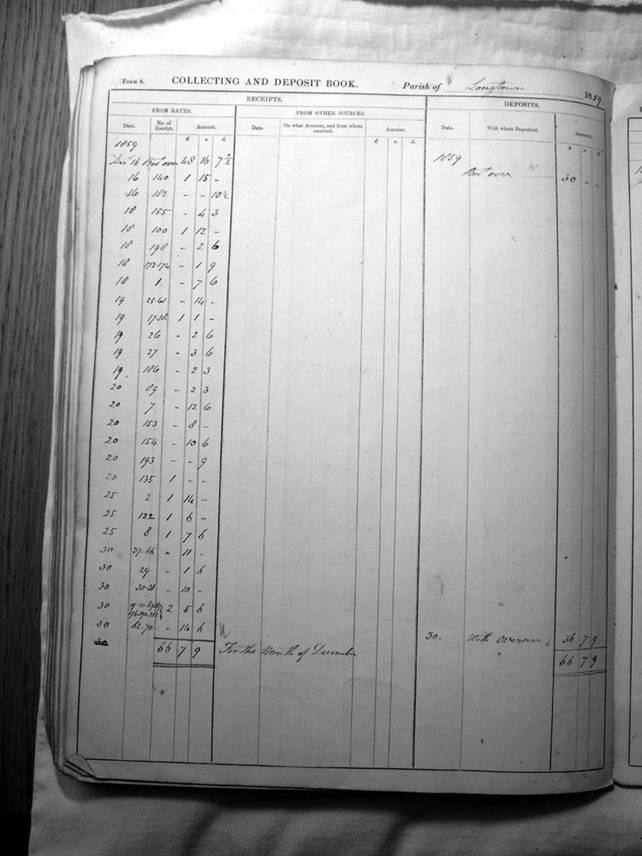 FORM 8. COLLECTING AND DEPOSIT BOOK. Parish of Longtown 1859.
RECEIPTS. DEPOSITS.
FROM RATES. FROM OTHER SOURCES.
Date. No. of Receipt. Amount. Date. On what Account, and from whom received. Amount. Date. With whom Deposited. Amount.
£ s. d. £ s. d. £ s. d.
1859 1859
Decr 16 Brot over 48 16 7½ Brot over 30 - -
16 140 1 15 -
16 182 - - 10½
18 155 - 4 3
18 100 1 12 -
18 198 - 2 6
18 173-174 - 1 9
18 1 - 7 6
19 25-61 - 14 -
19 17-18 1 1 -
19 26 - 2 6
19 27 - 3 6
19 186 - 2 3
20 89 - 2 3
20 7 - 12 6
20 153 - 8 -
20 154 - 10 6
20 193 - - 9
20 135 1 - -
25 2 1 14 -
25 122 1 6 -
25 8 1 7 6
30 - 11 -
30 29 - 1 6
30 30-31 - 10 -
30 2 5 6
30 62 70 - 14 6 30. With overseer 36 7 9
30 66 7 9 For the Month of December 66 7 9